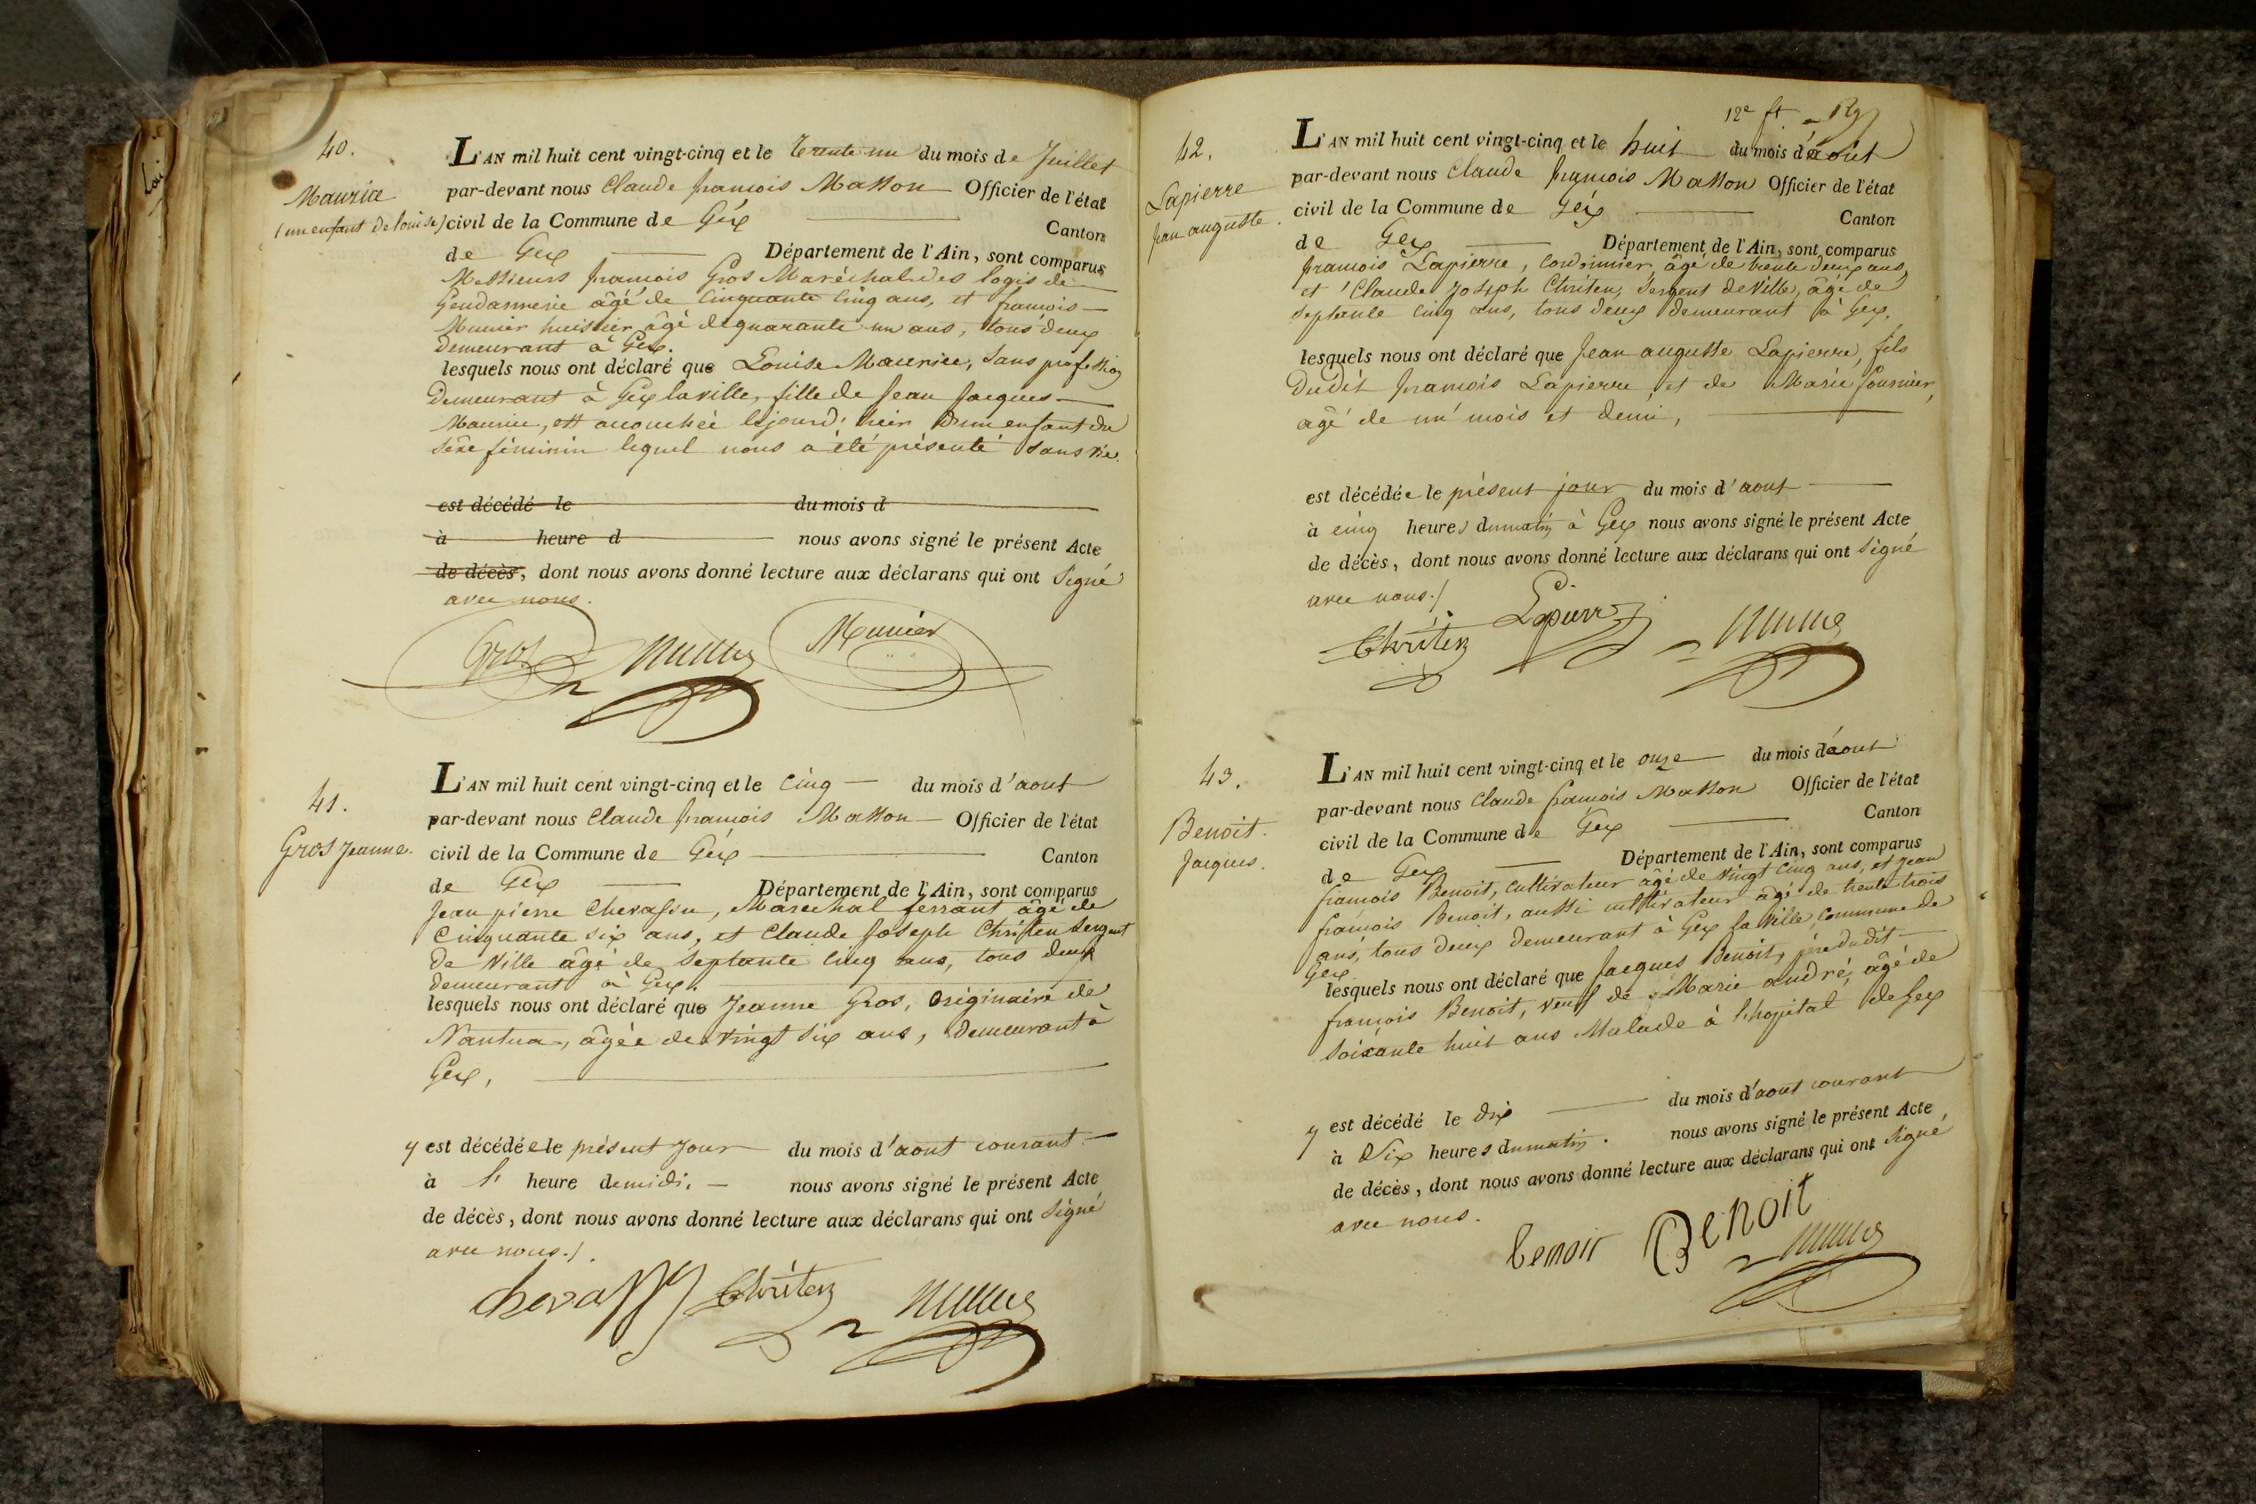 Loi
40.
Maurice
(un enfant de louise)
L'AN mil huit cent vingt-cinq et le trente un du mois de Juillet
par-devant nous Claude françois Masson Officier de l'état
civil de la Commune de Géx Canton
de Gex Département de l'Ain, sont comparus
Messieurs françois Gros Maréchal des logis de
Gendarmerie âgé de Cinquante Cinq ans, et françois
Munier huissier âgé de quarante un ans, tous deux
demeurant à Gex.
lesquels nous ont déclaré que Louise Maurice, sans profession
demeurant à Gex la ville, fille de Jean Jacques
Maurice, est accouchée le jourd'hier d'un enfant du
sexe féminin lequel nous a été présenté sans vie.
est décédé le du mois d
à heure d nous avons signé le présent Acte
de décès, dont nous avons donné lecture aux déclarans qui ont signé
avec nous.
Gros Munier
41.
Gros Jeanne.
L'AN mil huit cent vingt-cinq et le cinq du mois d'aout
par-devant nous Claude françois Masson Officier de l'état
civil de la Commune de Géx Canton
de Gex Département de l'Ain, sont comparus
Jean pierre Chevassu, Marechal ferrant âgé de
Cinquante six ans, et Claude Joseph Chrîsten sergent
de Ville âgé de septante cinq ans, tous deux
demeurant à Gex.
lesquels nous ont déclaré que Jeanne Gros, originaire de
Nantua, âgée de vingt six ans, demeurant à
Gex,
y est décédée le présent jour du mois d'aout courant
à l' heure de midi. nous avons signé le présent Acte
de décès, dont nous avons donné lecture aux déclarans qui ont signé
avec nous./.
Chrîsten
12e ft
42.
Lapierre
Jean auguste.
L'AN mil huit cent vingt-cinq et le huit du mois d'aout
par-devant nous Claude françois Masson Officier de l'état
civil de la Commune de Géx Canton
de Gex Département de l'Ain, sont comparus
françois Lapierre, cordonnier, âgé de trente deux ans,
et Claude Joseph Chrîsten, sergent de Ville, âgé de
septante cinq ans, tous deux demeurant à Gex.
lesquels nous ont déclaré que Jean auguste Lapierre, fils
dudit françois Lapierre et de Marie fournier,
âgé de un mois et demi,
est décédée le présent jour du mois d'aout
à cinq heures du matin à Gex nous avons signé le présent Acte
de décès, dont nous avons donné lecture aux déclarans qui ont signé
avec nous./
Chrîsten Lapierre
43.
Benoit.
Jacques.
L'AN mil huit cent vingt-cinq et le onze du mois d'aout
par-devant nous Claude françois Masson Officier de l'état
civil de la Commune de Géx Canton
de Gex Département de l'Ain, sont comparus
françois Benoit, cultivateur âgé de vingt cinq ans, et Jean
françois Benoit, aussi cultivateur âgé de trente trois
ans, tous deux demeurant à Gex la Ville, commune de
Gex.
lesquels nous ont déclaré que Jacques Benoit, père dudit
françois Benoit, veuf de Marie andré, âgé de
soixante huit ans Malade à l'hopital de Gex
y est décédé le dix du mois d'aout courant
à Dix heures du matin. nous avons signé le présent Acte
de décès, dont nous avons donné lecture aux déclarans qui ont signé
avec nous.
benoit Benoit